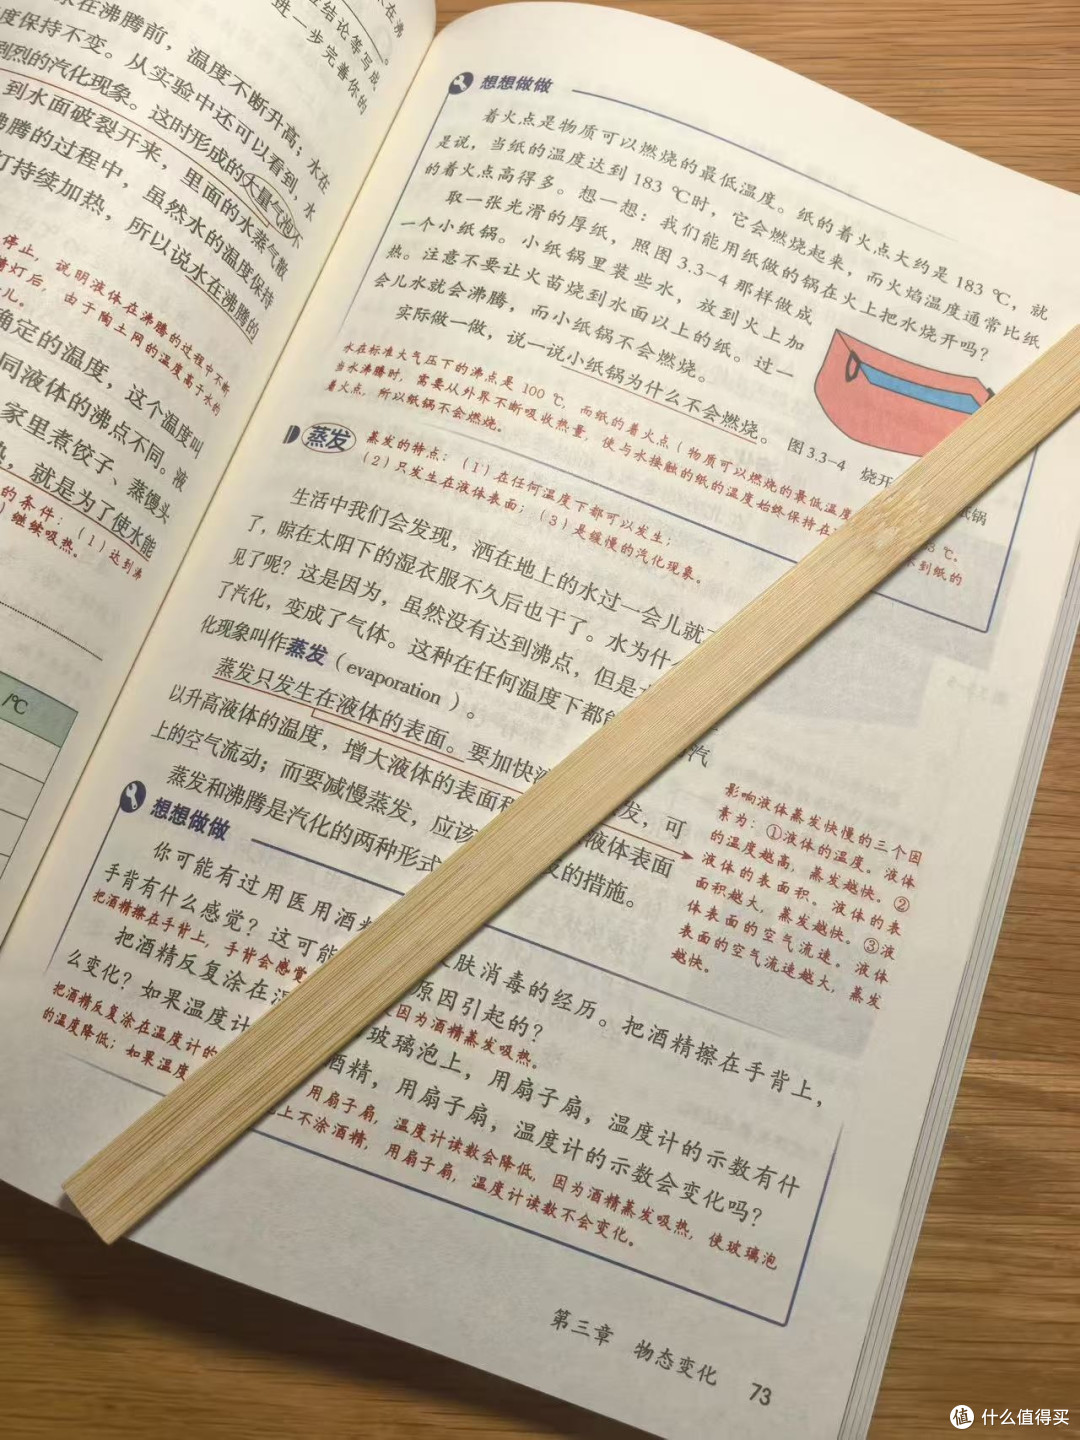 在沸
结论等写成
进一步完善你的
在沸腾前，温度不断升高；水在
度保持不变。从实验中还可以看到，水
剧烈的汽化现象。这时形成的大量气泡不
到水面破裂开来，里面的水蒸气散
沸腾的过程中，虽然水的温度保持
灯持续加热，所以说水在沸腾的
停止，说明液体在沸腾的过程中不断
精灯后，由于陶土网的温度高于水的
儿。
确定的温度，这个温度叫
同液体的沸点不同。液
家里煮饺子、蒸馒头
热，就是为了使水能
的条件：（1）达到沸
）继续吸热。
/℃
想想做做
着火点是物质可以燃烧的最低温度。纸的着火点大约是 183 ℃，就
是说，当纸的温度达到 183 ℃时，它会燃烧起来，而火焰温度通常比纸
的着火点高得多。想一想：我们能用纸做的锅在火上把水烧开吗？
取一张光滑的厚纸，照图 3.3-4 那样做成
一个小纸锅。小纸锅里装些水，放到火上加
热。注意不要让火苗烧到水面以上的纸。过一
会儿水就会沸腾，而小纸锅不会燃烧。
实际做一做，说一说小纸锅为什么不会燃烧。
水在标准大气压下的沸点是 100 ℃，而纸的着火点（物质可以燃烧的最低温度
3 ℃。
当水沸腾时，需要从外界不断吸收热量，使与水接触的纸的温度始终保持在
不到纸的
着火点，所以纸锅不会燃烧。
图 3.3-4 烧开
纸锅
蒸发
蒸发的特点：（1）在任何温度下都可以发生；
（2）只发生在液体表面；（3）是缓慢的汽化现象。
生活中我们会发现，洒在地上的水过一会儿就
了，晾在太阳下的湿衣服不久后也干了。水为什
见了呢？这是因为，虽然没有达到沸点，但是
了汽化，变成了气体。这种在任何温度下都能
汽
化现象叫作蒸发（evaporation）。
蒸发只发生在液体的表面。要加快
发，可
以升高液体的温度，增大液体的表面积
液体表面
上的空气流动；而要减慢蒸发，应该
发的措施。
蒸发和沸腾是汽化的两种形式
影响液体蒸发快慢的三个因
素为：①液体的温度。液体
的温度越高，蒸发越快。②
液体的表面积。液体的表
面积越大，蒸发越快。③液
体表面的空气流速。液体
表面的空气流速越大，蒸发
越快。
想想做做
你可能有过用医用酒精
肤消毒的经历。把酒精擦在手背上，
手背有什么感觉？这可能
原因引起的？
把酒精擦在手背上，手背会感觉
因为酒精蒸发吸热。
把酒精反复涂在温
玻璃泡上，用扇子扇，温度计的示数有什
么变化？如果温度计
酒精，用扇子扇，温度计的示数会变化吗？
把酒精反复涂在温度计的
用扇子扇，温度计读数会降低，因为酒精蒸发吸热，使玻璃泡
的温度降低；如果温度
上不涂酒精，用扇子扇，温度计读数不会变化。
第三章 物态变化 73
值 什么值得买